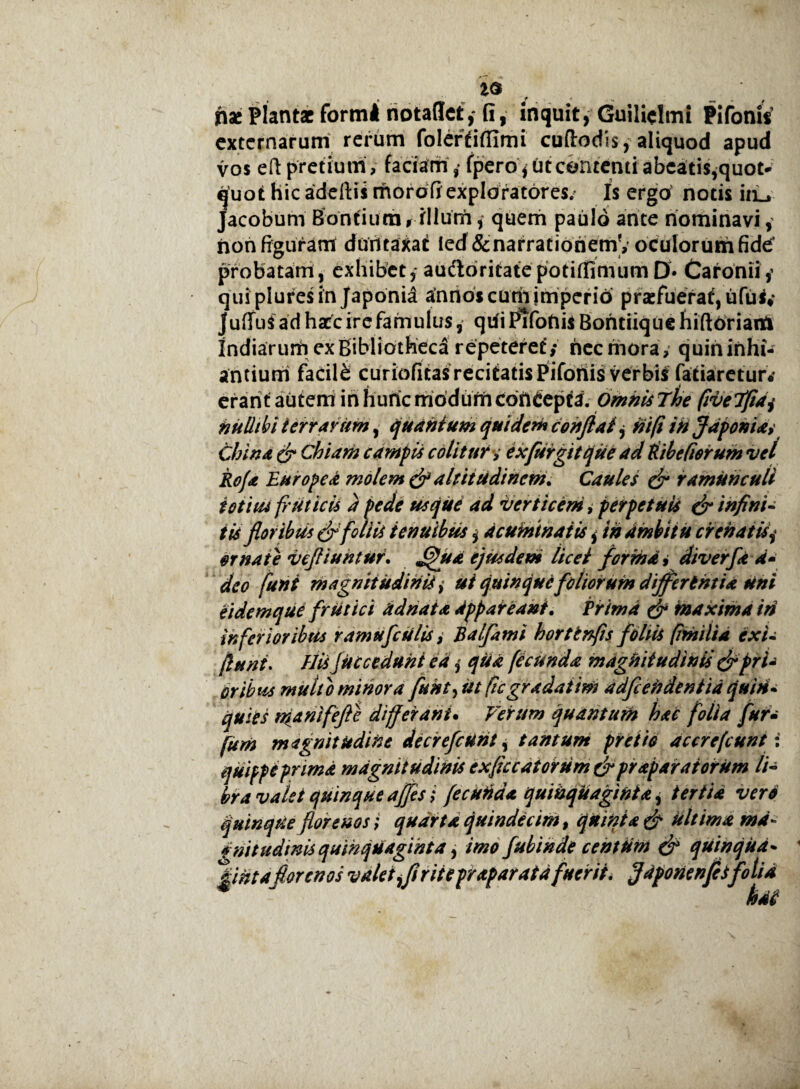 20
næ Plantæ formâ notasset, si, inquit, Guilielmi Pisonis
externarum rerum solertissimi custodis, aliquod apud
vos est pretium, faciam, spero, ut contenti abeatis, quot-
quot hic adestis morosi exploratores. Is ergo notis in
Jacobum Bontium, illum, quem paulò ante nominavi,
non figuram duntaxat sed & narrationem, oculorum fide
probatam, exhibet, auctoritate potissimum D. Caronii,
qui plures in Japoniâ annos cum imperio præfuerat, usus,
Jussus ad hæc ire famulus, qui Pisonis Bontiique historiam
Indiarum ex Bibliothecâ repeteret, nec mora, quin inhi-
antium facilè curiositas recitatis Pisonis verbis satiaretur,
erant autem in hunc modum concepta. Omnis The sive Tsia,
nullibi terrarum, quantum quidem constat, nisi in Japonia,
China & Chiam campis colitur, exsurgitque ad Ribesiorum vel
Rosæ Europeæ molem & altitudinem. Caules & ramunculi
totius fruticis à pede usque ad verticem, perpetuis & infini-
tis floribus & foliis tenuibus, acuminatis, in ambitu crenatis,
ornatè vestiuntur. Quæ ejusdem licet formæ, diversæ a-
deo sunt magnitudinis, ut quinque foliorum differentiæ uni
eidemque frutici adnatæ appareant. Prima & maxima in
inferioribus ramusculis, Balsami hortensis foliis similia exi-
stunt. His succedunt ea, quæ secundæ magnitudinis & pri-
oribus multo minora sunt, ut sic gradatim adscendentia quin-
quies manifestè differant. Verum quantum hac folia sur-
sum magnitudine decrescunt, tantum pretio accrescunt:
quippe primæ magnitudinis exsiccatorum & præparatorum li-
bra valet quinque asses; secunda quinquaginta, tertia vero
quinque florenos; quarta quindecim, quinta & ultimæ ma-
gnitudinis quinquaginta, imo subinde centum & quinqua-
ginta florenos valet, si rite præparata fuerit. Japonenses folia
hac